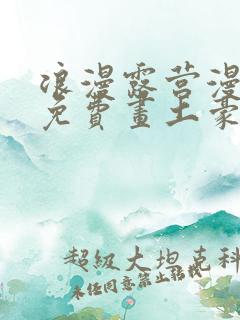 浪漫露营漫
免費畫土豪
超级大坦克科
未经同意禁止转载